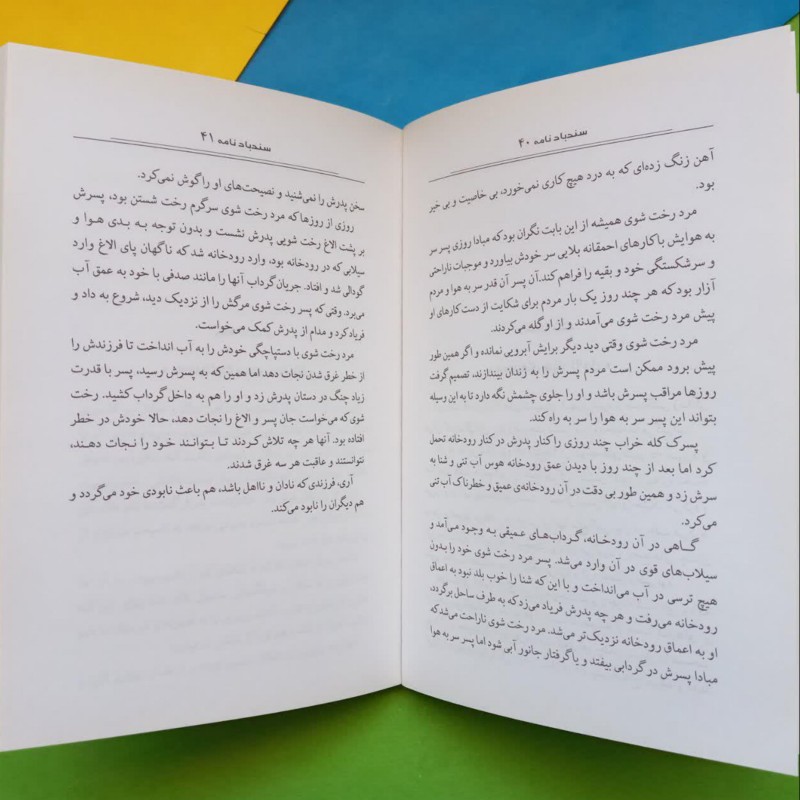 سندباد نامه ۴۰
آهن زنگ زده‌ای که به درد هیچ کاری نمی‌خورد، بی خاصیت و بی خیر
بود.
مرد رخت شوی همیشه از این بابت نگران بود که مبادا روزی پسر سر
به هوایش با کارهای احمقانه بلایی سر خودش بیاورد و موجبات ناراحتی
و سرشکستگی خود و بقیه را فراهم کند. آن پسر آن قدر سر به هوا و مردم
آزار بود که هر چند روز یک بار مردم برای شکایت از دست کارهای او
پیش مرد رخت شوی می‌آمدند و از او گله می‌کردند.
مرد رخت شوی وقتی دید دیگر برایش آبرویی نمانده و اگر همین طور
پیش برود ممکن است مردم پسرش را به زندان بیندازند، تصمیم گرفت
روزها مراقب پسرش باشد و او را جلوی چشمش نگه دارد تا به این وسیله
بتواند این پسر سر به هوا را سر به راه کند.
پسرک کله خراب چند روزی را کنار پدرش در کنار رودخانه تحمل
کرد اما بعد از چند روز با دیدن عمق رودخانه هوس آب تنی و شنا به
سرش زد و همین طور بی دقت در آن رودخانه‌ی عمیق و خطرناک آب تنی
می‌کرد.
گاهی در آن رودخانه، گرداب‌های عمیقی به وجود می‌آمد و
سیلاب‌های قوی در آن وارد می‌شد. پسر مرد رخت شوی خود را بدون
هیچ ترسی در آب می‌انداخت و با این که شنا را خوب بلد نبود به اعماق
رودخانه می‌رفت و هر چه پدرش فریاد می‌زد که به طرف ساحل برگردد،
او به اعماق رودخانه نزدیک‌تر می‌شد. مرد رخت شوی ناراحت می‌شد که
مبادا پسرش در گردابی بیفتد و یا گرفتار جانور آبی شود اما پسر سر به هوا
سندباد نامه ۴۱
سخن پدرش را نمی‌شنید و نصیحت‌های او را گوش نمی‌کرد.
روزی از روزها که مرد رخت شوی سرگرم رخت شستن بود، پسرش
بر پشت الاغ رخت شویی پدرش نشست و بدون توجه به بدی هوا و
سیلابی که در رودخانه بود، وارد رودخانه شد که ناگهان پای الاغ وارد
گودالی شد و افتاد. جریان گرداب آنها را مانند صدفی با خود به عمق آب
می‌برد. وقتی که پسر رخت شوی مرگش را از نزدیک دید، شروع به داد و
فریاد کرد و مدام از پدرش کمک می‌خواست.
مرد رخت شوی با دستپاچگی خودش را به آب انداخت تا فرزندش را
از خطر غرق شدن نجات دهد اما همین که به پسرش رسید، پسر با قدرت
زیاد چنگ در دستان پدرش زد و او را هم به داخل گرداب کشید. رخت
شوی که می‌خواست جان پسر و الاغ را نجات دهد، حالا خودش در خطر
افتاده بود. آنها هر چه تلاش کردند تا بتوانند خود را نجات دهند،
نتوانستند و عاقبت هر سه غرق شدند.
آری، فرزندی که نادان و نااهل باشد، هم باعث نابودی خود می‌گردد و
هم دیگران را نابود می‌کند.